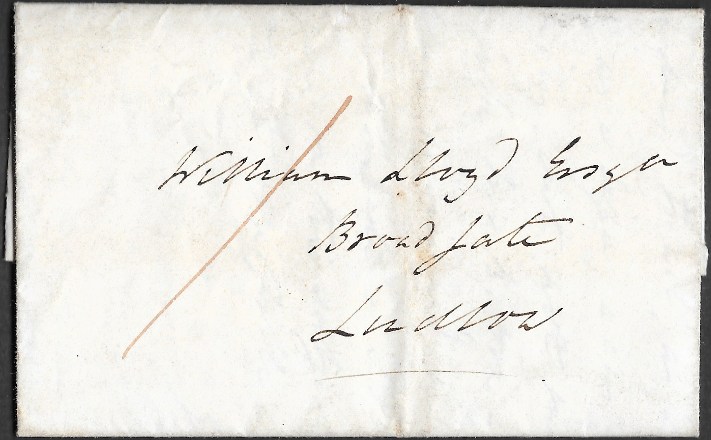 William Lloyd Esqr
Broad Gate
Ludlow